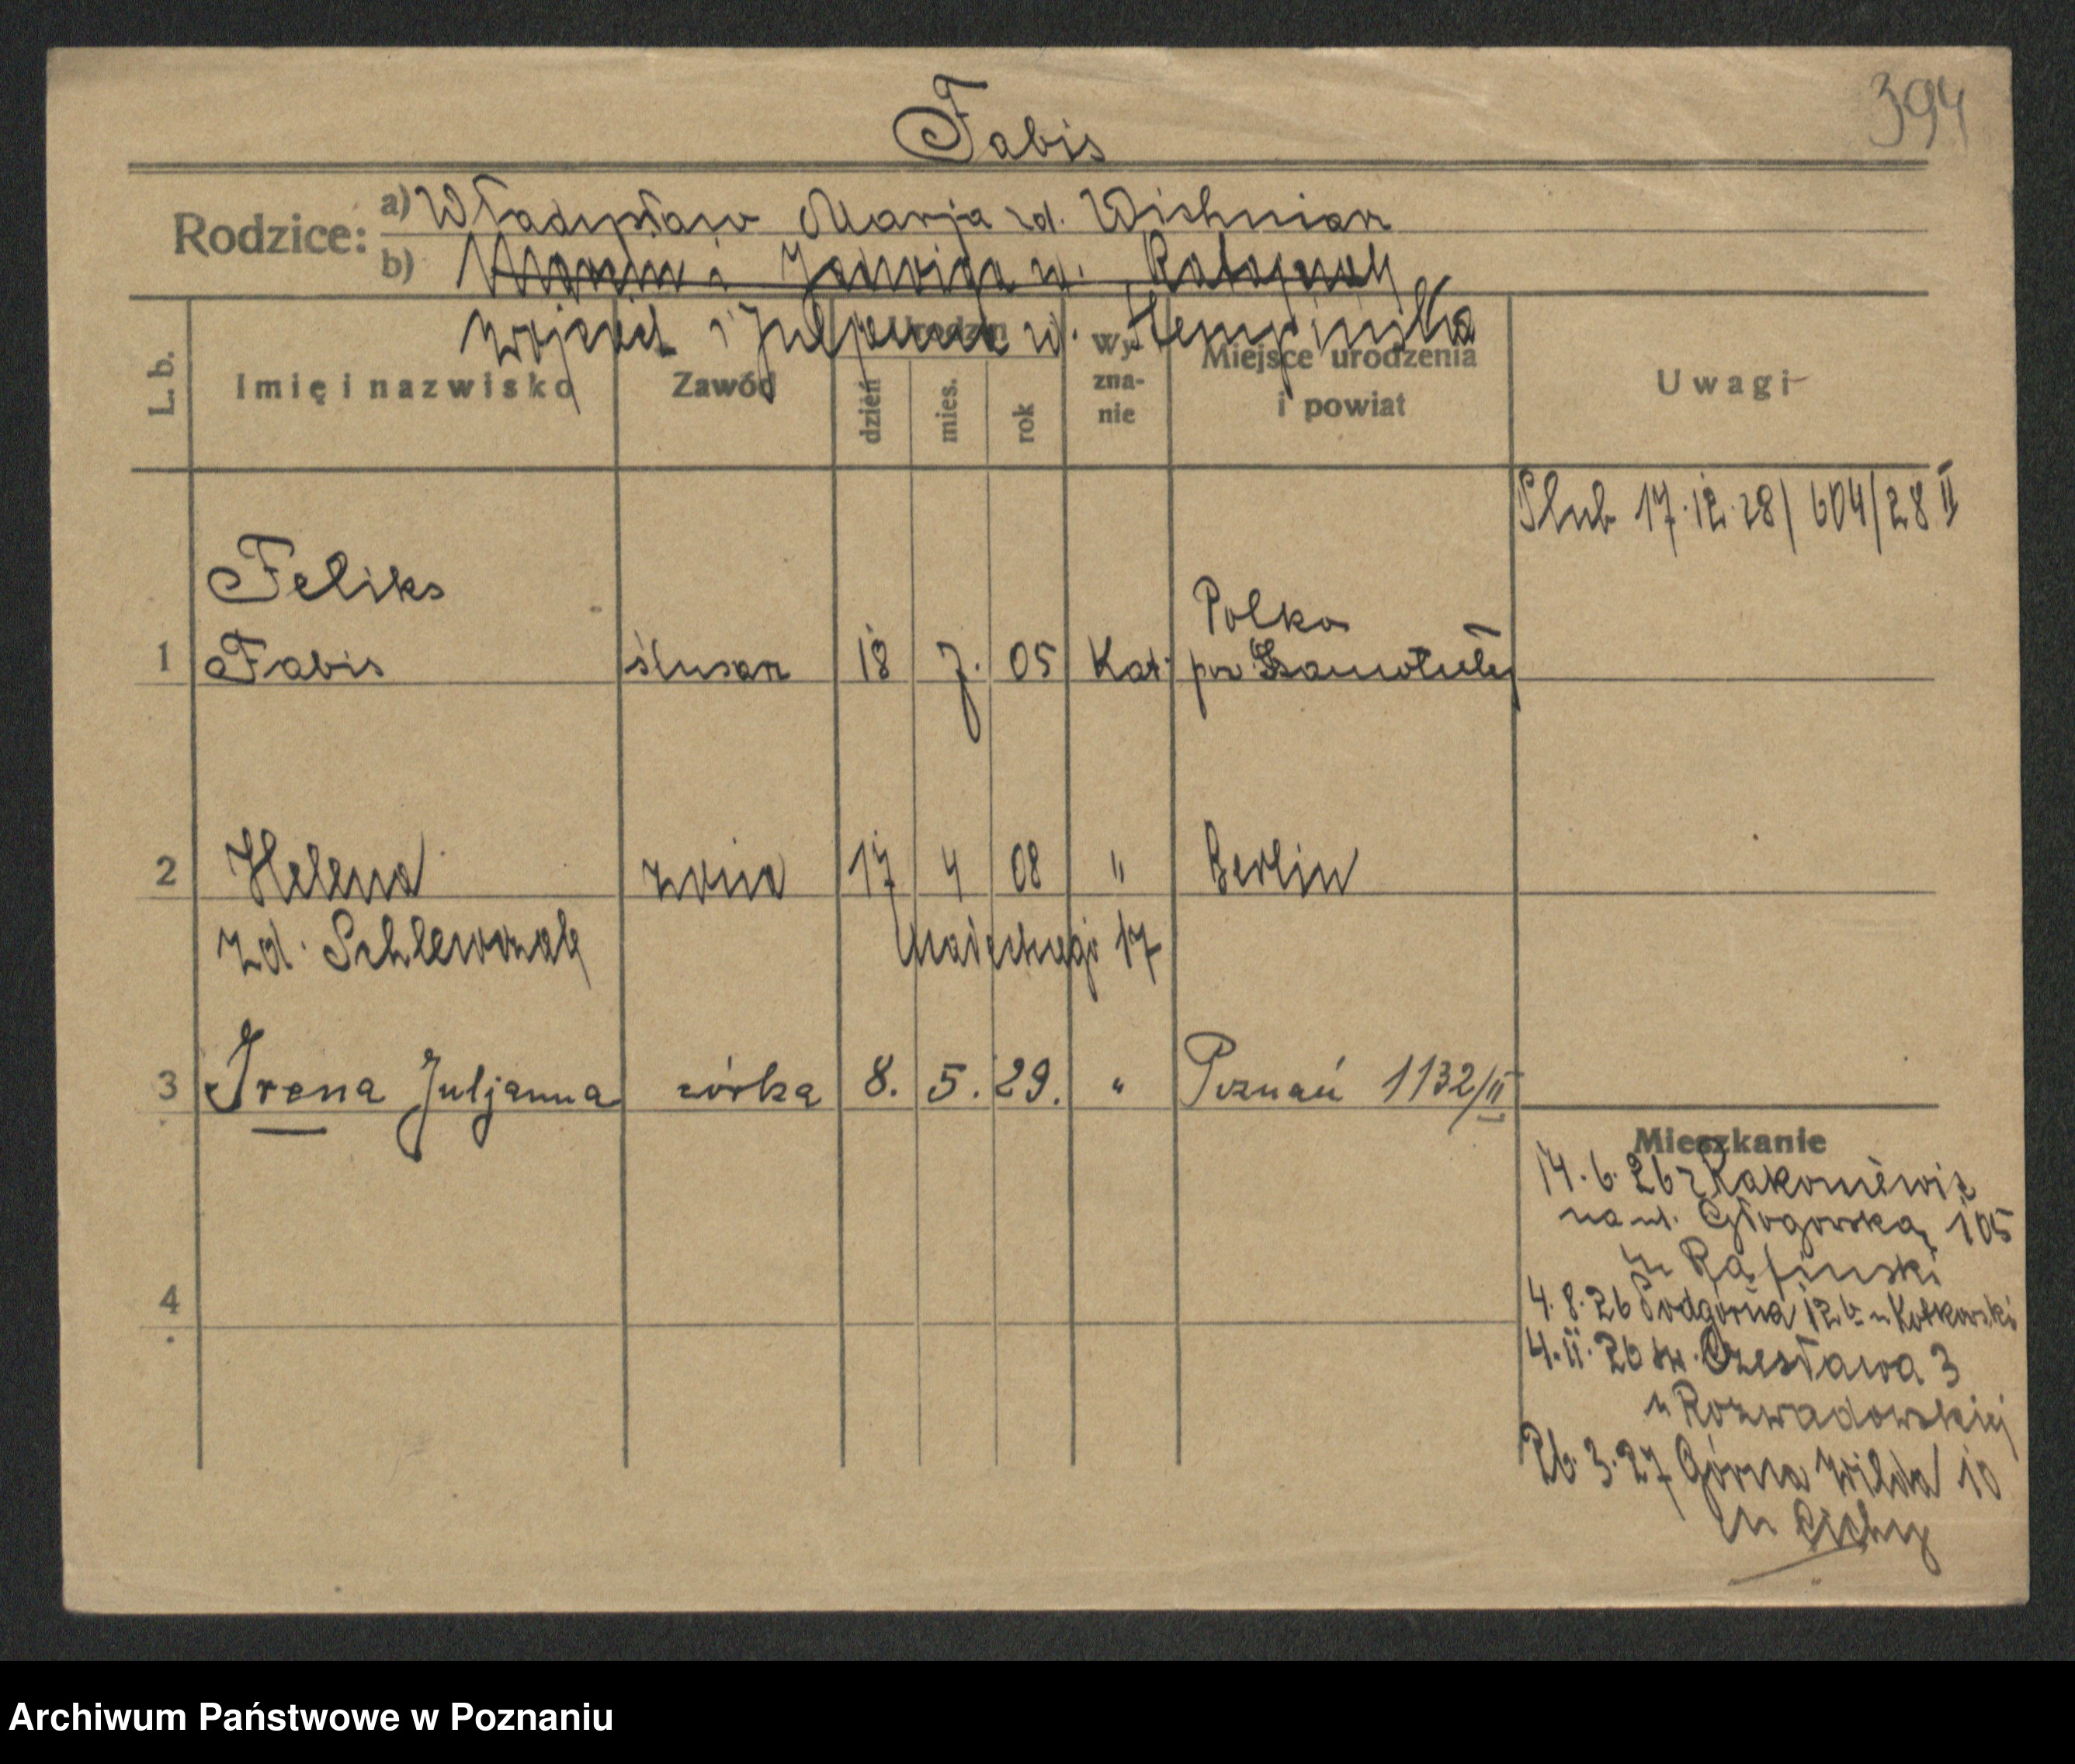 394
Fabis
Rodzice: a) Władysław Marja zd. Wishnian
b) i Jadwiga zd. Ratajczak
Wojciech i Juljanna zd.
L. b. Imię i nazwisko Zawód Urodzin dzień mies. rok Wyzna-nie Miejsce urodzenia i powiat Uwagi
Slub 17.12.28/ 604/28 II
Feliks
Polko
1 Fabis ślusarz 18 7. 05 Kat. pow Szamotuły
2 Helena żona 17 4 08 " Berlin
zd. 17
3 Irena Juljanna córka 8. 5. 29. " Poznań 1132/II
Mieszkanie
14.6.26 z Rakoniewic
na ul. Głogowską 105
u
4.8.26 Podgórna 12b u Kotkowski
4.11.26 św. Czesława 3
u Rozwadowskiej
26.3.27 Górna Wilda 10
u Cichy
4
Archiwum Państwowe w Poznaniu